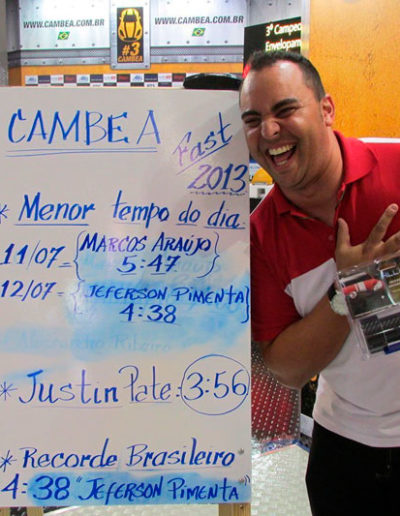 WWW.CAMBEA.COM.BR
#3
CAMBEA
WWW.CAMBEA.COM.BR
3º Campeo
Envelopam
CAMBEA
Fast
2013
* Menor tempo do dia
11/07 = {MARCOS ARAÚJO}
5:47
12/07 = {JEFERSON PIMENTA}
4:38
* Justin Pate: 3:56
* Recorde Brasileiro *
4:38 "JEFERSON PIMENTA"